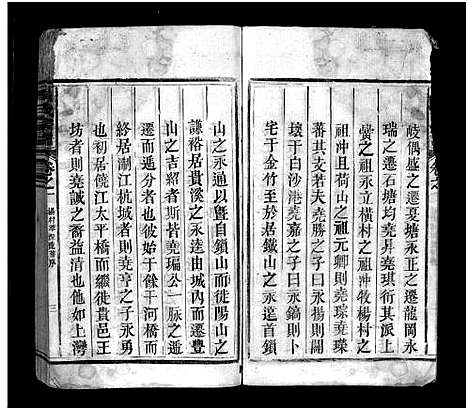 岐偶盛之遷夏塘永正之遷龍岡永
瑞之遷石塘均堯昇堯琪衍其派上
黌之祖永立橫村之祖沖牧楊村之
祖沖且荷山之祖元卿則堯琛堯璨
蕃其支若夫堯勝之子曰永揚則開
壤于白沙港堯嘉之子曰永鎬則卜
宅于金竹至於居鐵山之永遠首鎖
山之永通以曁自鎖山而徙陽山之
謙裕居貴溪之永逵由城內而遷豐
山之吉紹者斯皆堯瑞公一脉之遊
遷而遞分者也彼始于餘干河橋而
終居淛江杭城者則堯亨之子永勇
也初居饒江太平橋而繼徙貴邑王
坊者則堯誠之裔益清也他如上灣
卷之一
三